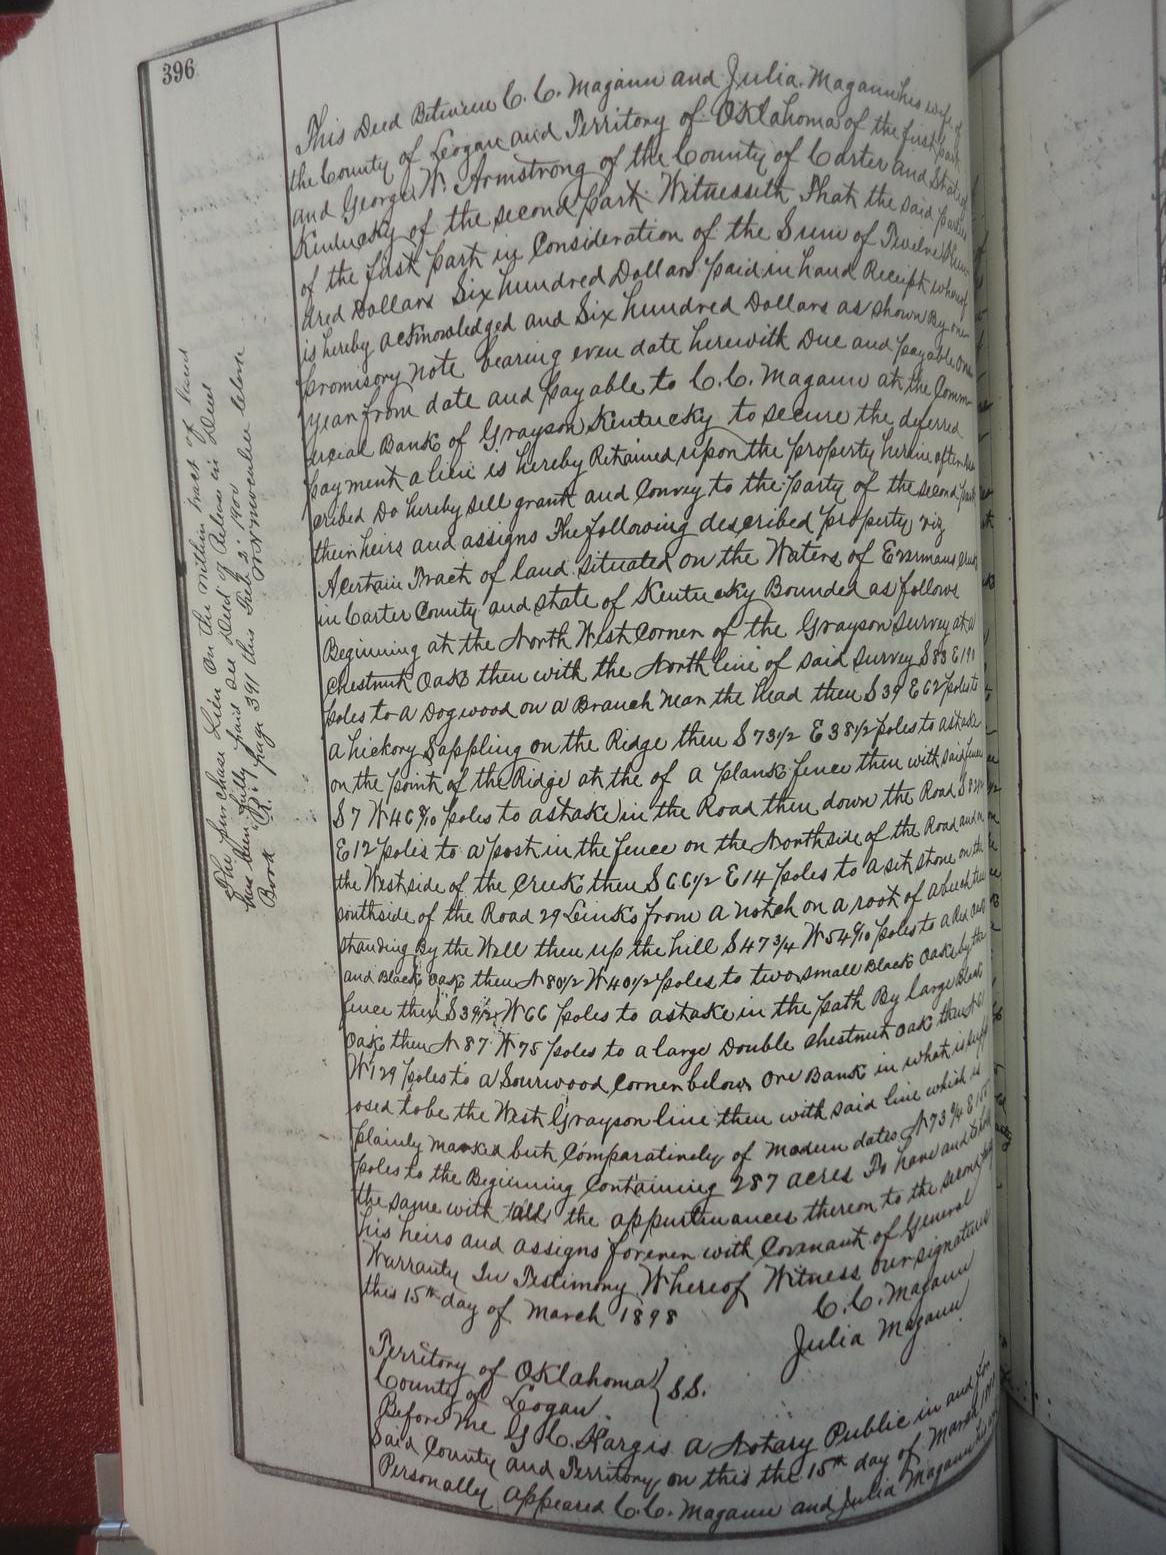 396
This Deed Between C. C. Magann and Julia Magann his wife of
the County of Logan and Territory of Oklahoma of the first part
and George W. Armstrong of the County of Carter and State of
Kentucky of the second part Witnesseth That the said parties
of the first part in Consideration of the Sum of Twelve Hun
dred Dollars Six hundred Dollars paid in hand Receipt whereof
is hereby acknowledged and Six hundred Dollars as shown By one
promisory note bearing even date herewith Due and payable one
year from date and payable to C. C. Magann at the Comm
ercial Bank of Grayson Kentucky to secure the deferred
payment a lien is hereby Retained upon the property herein after des
cribed Do hereby sell grant and Convey to the party of the second part
their heirs and assigns The following described property viz
A certain Tract of land situated on the Waters of
in Carter County and state of Kentucky Bounded as follows
Beginning at the North West Corner of the Grayson survey at a
chestnut Oak then with the North line of said survey S 83 E 190
poles to a Dogwood on a Branch near the head then S 39 E 62 poles to
a hickory Sappling on the Ridge then S 73 1/2 E 38 1/2 poles to a stake
on the point of the Ridge at the of a plank fence then with said fence
S 7 W 46 poles to a stake in the Road then down the Road S
E 12 poles to a post in the fence on the North side of the Road and on
the West side of the Creek then S 66 1/2 E 14 poles to a set stone on the
southside of the Road 29 Links from a notch on a root of a beech tree
standing By the Well then up the hill S 47 3/4 W 54 poles to a Red Oak
and Black oak then N 80 1/2 W 40 1/2 poles to two small Black Oaks by the
fence then S 39 1/2 W 66 poles to a stake in the path By large Black
Oak then N 87 W 75 poles to a large Double chestnut oak then
W 129 poles to a Sourwood Corner below Ore Bank in what is supp
osed to be the West Grayson line then with said line which is
plainly marked but Comparatively of modern dates N 73 3/4 E
poles to the Beginning Containing 287 acres To have and to hold
the same with all the appurtenances thereon to the second party
his heirs and assigns forever with Covenant of General
Warranty In Testimony Whereof Witness our signatures
this 15th day of March 1898
C. C. Magann
Julia Magann
Territory of Oklahoma } S.S.
County of Logan
Before me G H. Hargis a Notary Public in and for
said County and Territory on this the 15th day of March
Personally appeared C. C. Magann and Julia Magann
The purchase Lien On the within tract of land
has been fully paid see Deed of Release in Deed
Book page 391 this Feb 2" 1900